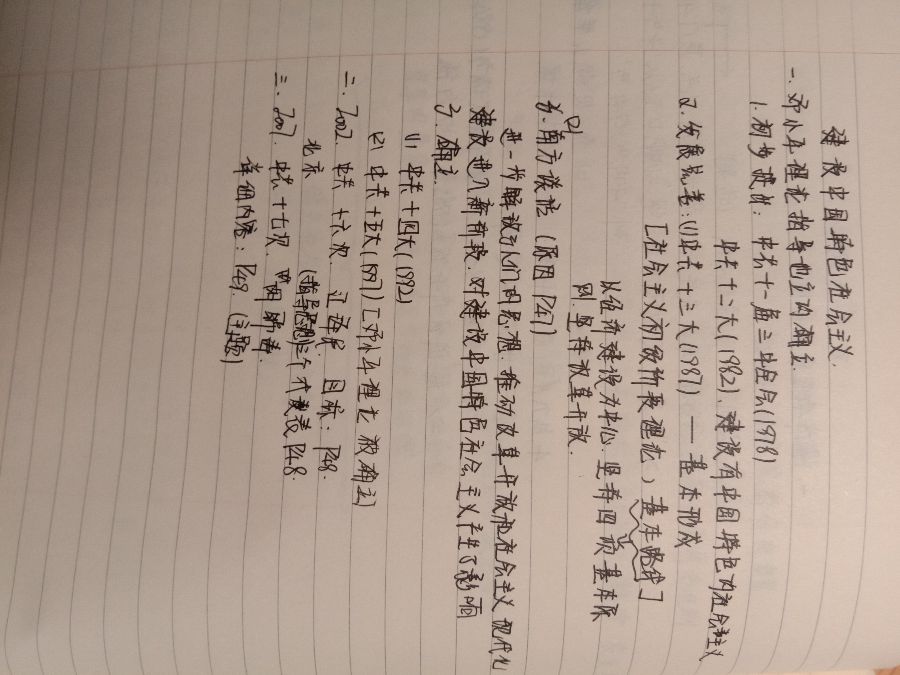 建设中国特色社会主义.
一. 邓小平理论指导地位的确立.
1. 初步提出: 中共十一届三中全会(1978)
中共十二大(1982). 建设有中国特色的社会主义
2. 发展完善: (1)中共十三大(1987) —— 基本形成
[社会主义初级阶段理论, 基本路线]
以经济建设为中心. 坚持四项基本原
则. 坚持改革开放.
(2) 南方谈话 (原因 P47)
进一步解放了人们思想. 推动改革开放和社会主义现代化
建设进入新阶段. 对建设中国特色社会主义产生了影响
3. 确立.
(1) 中共十四大(1992)
(2) 中共十五大(1997) [邓小平理论被确立]
二. 2002. 中共十六次. 目标: P48.
北京 (指导思想: 三个代表 P48.
三. 2007. 中共十七次.
详细内容: P48. (主题)